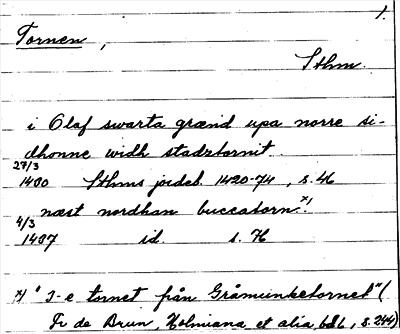 1.
Tornen,
Sthm.
i Olaf swarta grænd upa norre si-
dhonne widh stadztornit.
27/3
1480 Sthms jordeb. 1420-74, s. 46
næst nordhan buccatorn x)
4/3
1487 id. s. 74
x) "3-e tornet från Gråmunketornet" (
Fr de Brun, Holmiana et alia, bd 6, s. 244)